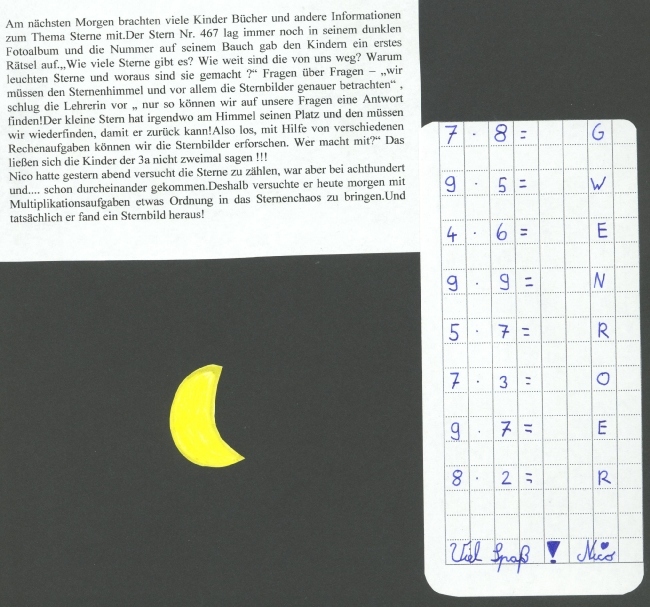 Am nächsten Morgen brachten viele Kinder Bücher und andere Informationen
zum Thema Sterne mit.Der Stern Nr. 467 lag immer noch in seinem dunklen
Fotoalbum und die Nummer auf seinem Bauch gab den Kindern ein erstes
Rätsel auf.„Wie viele Sterne gibt es? Wie weit sind die von uns weg? Warum
leuchten Sterne und woraus sind sie gemacht ?“ Fragen über Fragen – „wir
müssen den Sternenhimmel und vor allem die Sternbilder genauer betrachten“ ,
schlug die Lehrerin vor „ nur so können wir auf unsere Fragen eine Antwort
finden!Der kleine Stern hat irgendwo am Himmel seinen Platz und den müssen
wir wiederfinden, damit er zurück kann!Also los, mit Hilfe von verschiedenen
Rechenaufgaben können wir die Sternbilder erforschen. Wer macht mit?“ Das
ließen sich die Kinder der 3a nicht zweimal sagen !!!
Nico hatte gestern abend versucht die Sterne zu zählen, war aber bei achthundert
und.... schon durcheinander gekommen.Deshalb versuchte er heute morgen mit
Multiplikationsaufgaben etwas Ordnung in das Sternenchaos zu bringen.Und
tatsächlich er fand ein Sternbild heraus!
7 · 8 = G
9 · 5 = W
4 · 6 = E
9 · 9 = N
5 · 7 = R
7 · 3 = O
9 · 7 = E
8 · 2 = R
Viel Spaß ! Nico